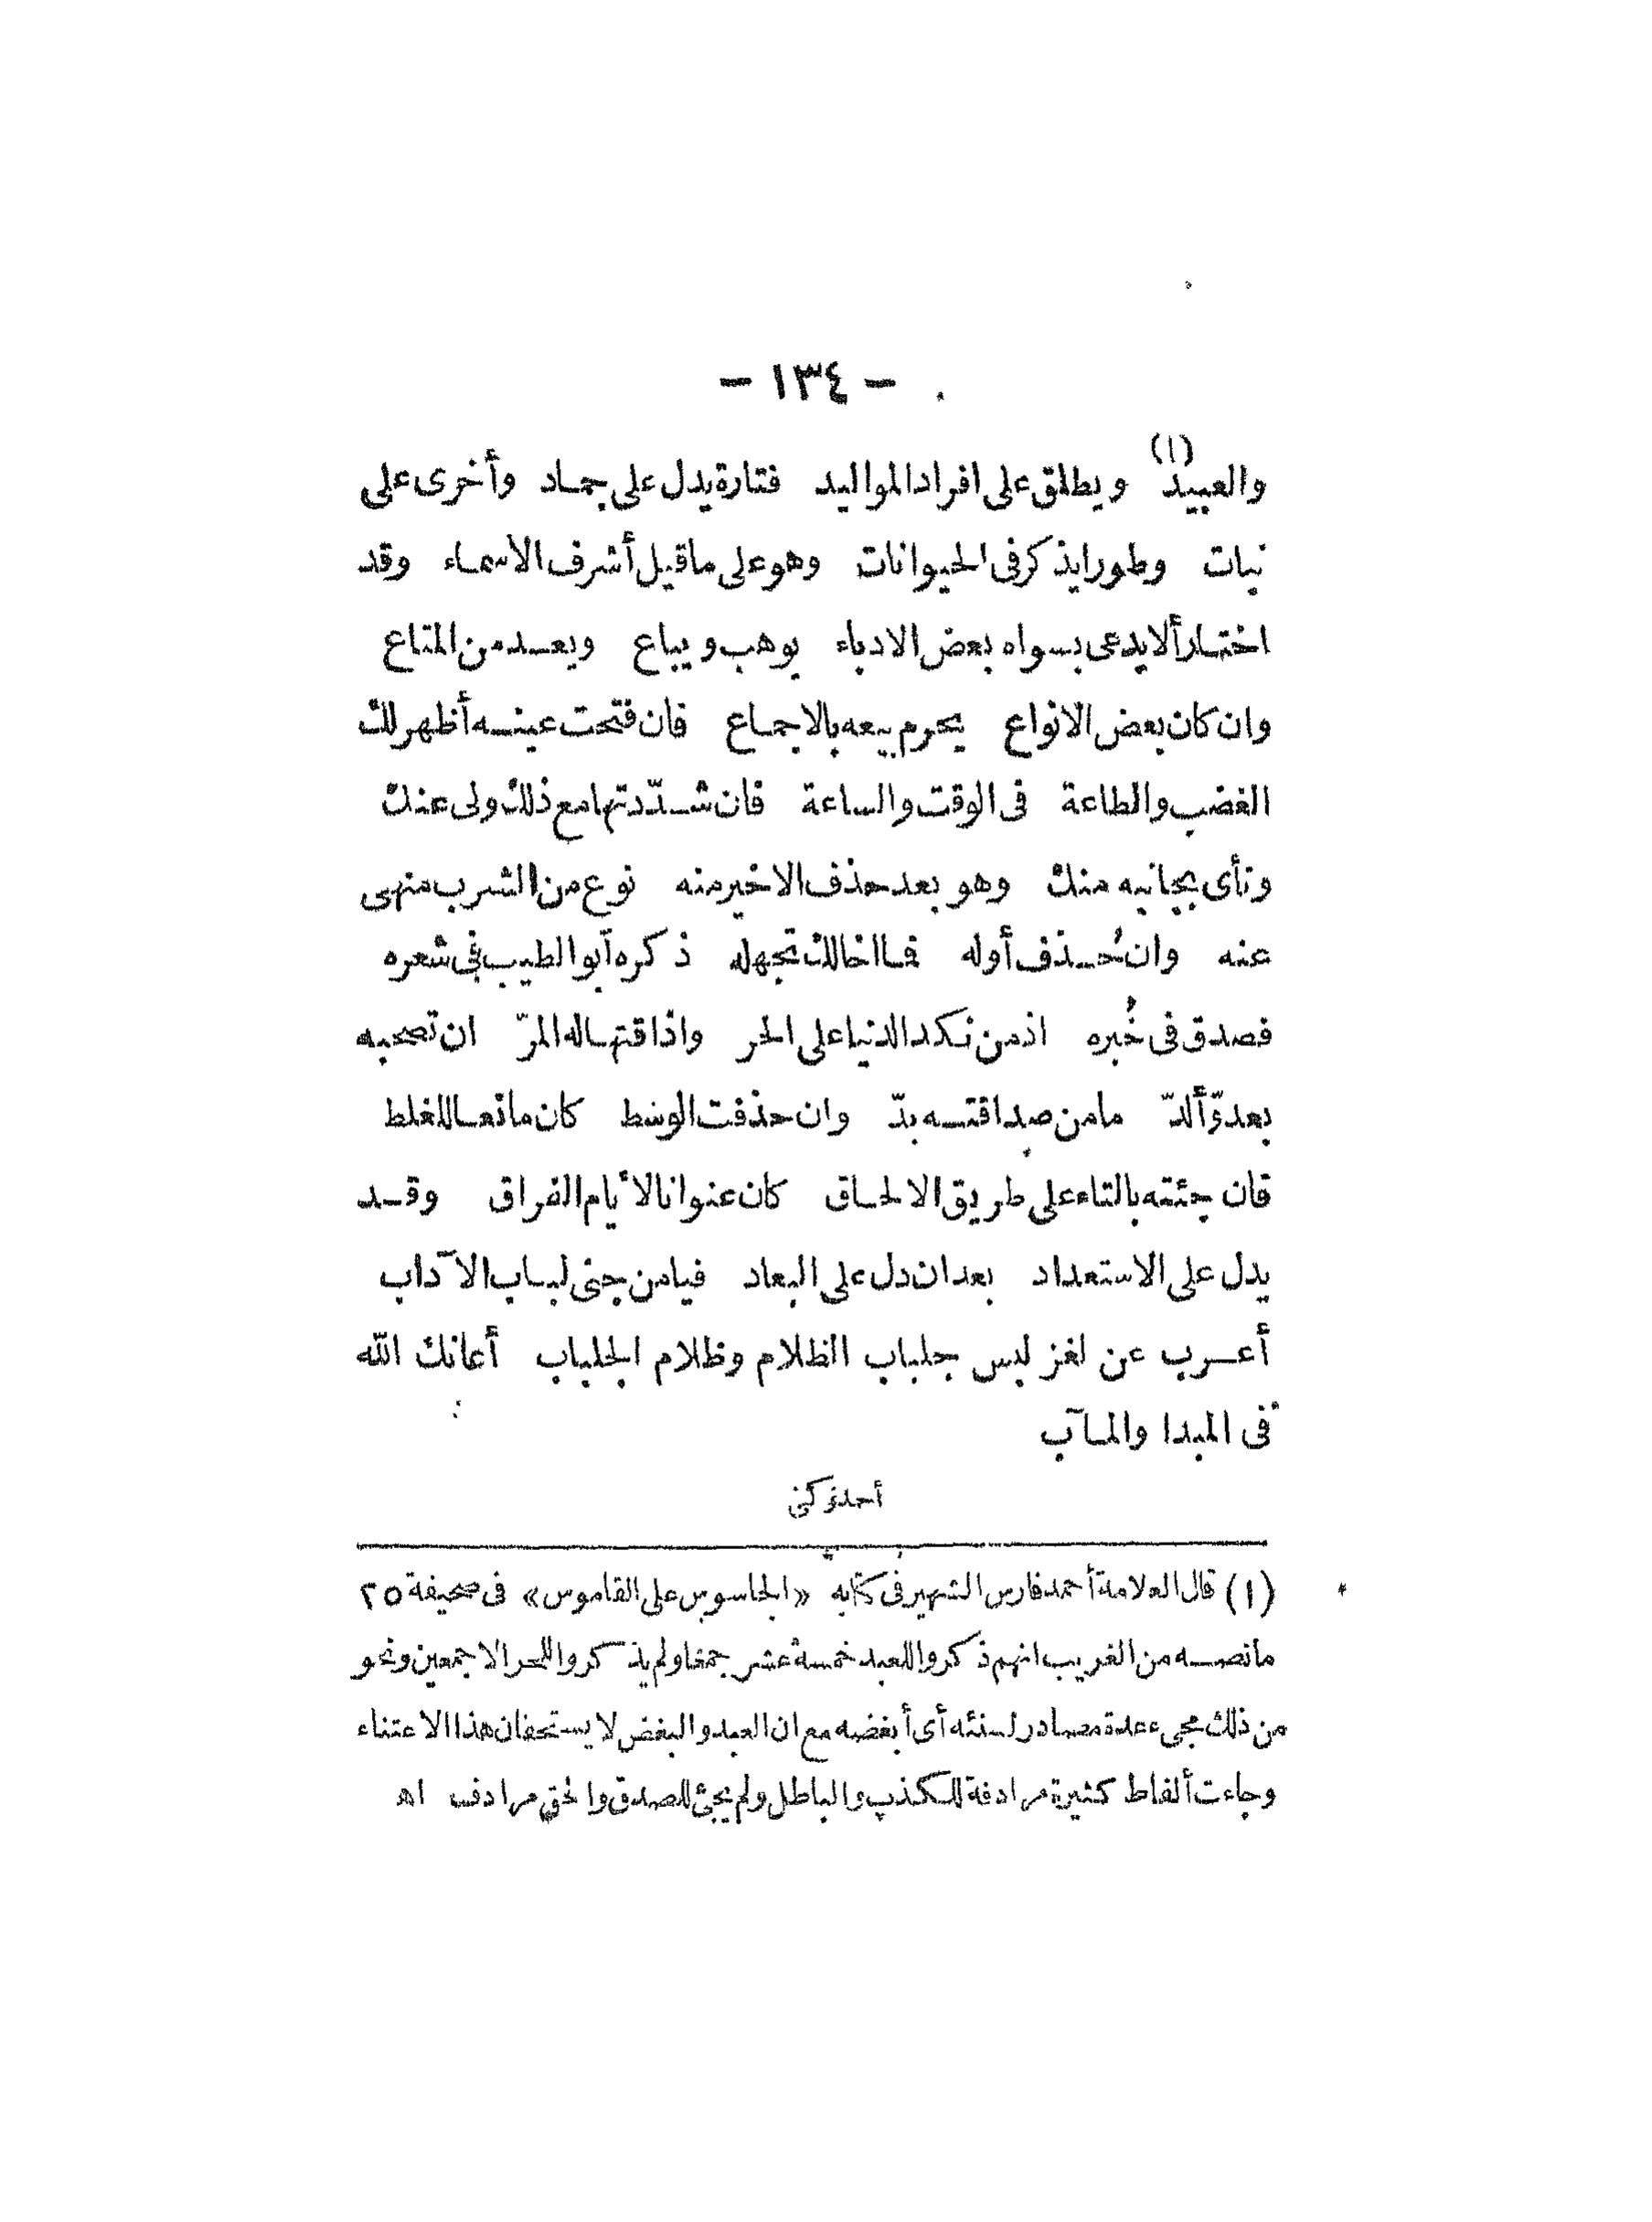 - ١٣٤ -
والعبيد (١) ويطلق على افراد المواليد فتارة يدل على جماد وأخرى على
نبات وطورا يذكر فى الحيوانات وهو على ما قيل أشرف الاسماء وقد
اختار ألا يدعى بسواه بعض الادباء يوهب ويباع ويعد من المتاع
وان كان بعض الانواع يحرم بيعه بالاجماع فان فتحت عينه أظهر لك
الغضب والطاعة فى الوقت والساعة فان شدّدتها مع ذلك ولى عنك
ونأى بجانبه منك وهو بعد حذف الاخير منه نوع من الشرب منهى
عنه وان حُذف أوله فما اخالك تجهله ذكره أبو الطيب فى شعره
فصدق فى خُبره اذ من نكد الدنيا على الحر واذاقتها له المرّ ان تصحبه
بعدوّ ألدّ ما من صداقته بدّ وان حذفت الوسط كان مانعا للغلط
فان جئته بالتاء على طريق الالحاق كان عنوانا لأيام الفراق وقد
يدل على الاستعداد بعد ان دل على البعاد فيامن جنى لباب الآداب
أعرب عن لغز لبس جلباب الظلام وظلام الجلباب أعانك الله
فى المبدا والمآب
(١) قال العلامة أحمد فارس الشهير فى كتابه «الجاسوس على القاموس» فى صحيفة ٢٥
ما نصه من الغريب انهم ذكروا للعبد خمسة عشر جمعا ولم يذكروا للحر الا جمعين ونحو
من ذلك مجىء عدة مصادر لشنئه أى أبغضه مع ان العبد والبغض لا يستحقان هذا الاعتناء
وجاءت ألفاظ كثيرة مرادفة للكذب والباطل ولم يجئ للصدق والحق مرادف اه